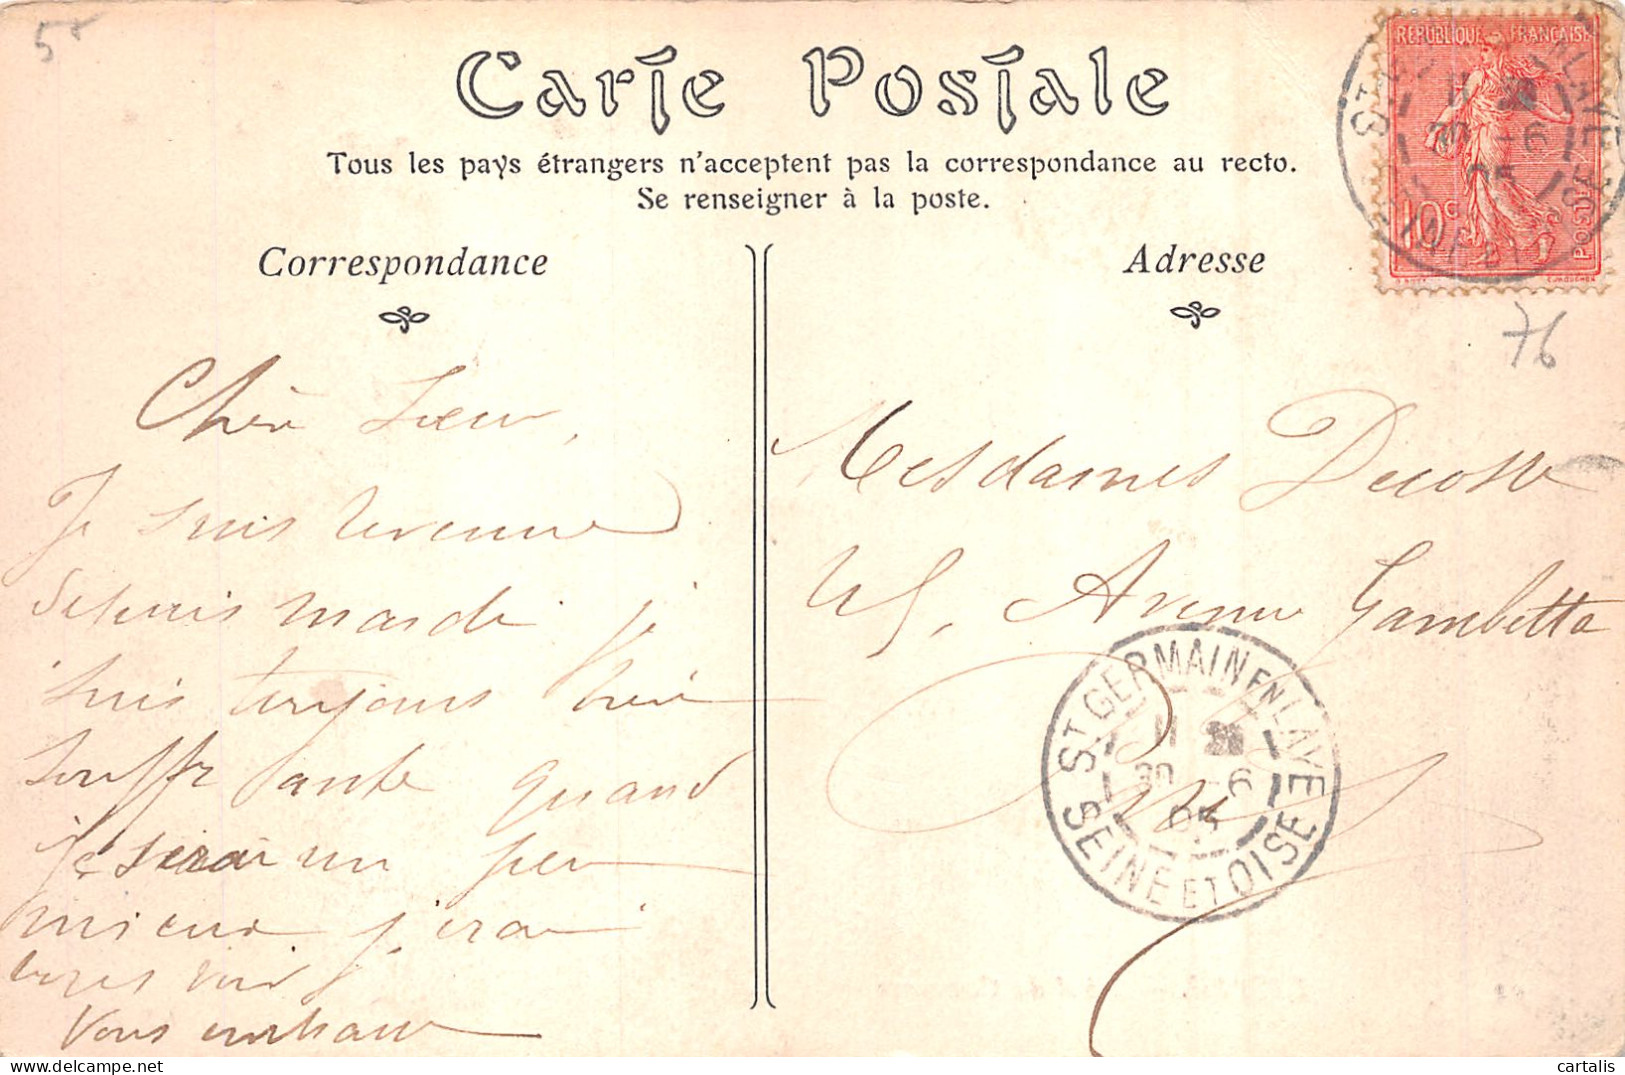 5
Carte Postale
Tous les pays étrangers n'acceptent pas la correspondance au recto.
Se renseigner à la poste.
Correspondance
Adresse
REPUBLIQUE FRANÇAISE
10c
POSTES
76
Chère Sœur,
Je suis revenue
depuis mardi je
suis toujours bien
souffrante quand
je serai un peu
mieux j'irai
vous voir
Vous embrasse
Mesdames Decoste
45, Avenue Gambetta
ST GERMAIN EN LAYE
11
30 -6
05
SEINE ET OISE
cartalis